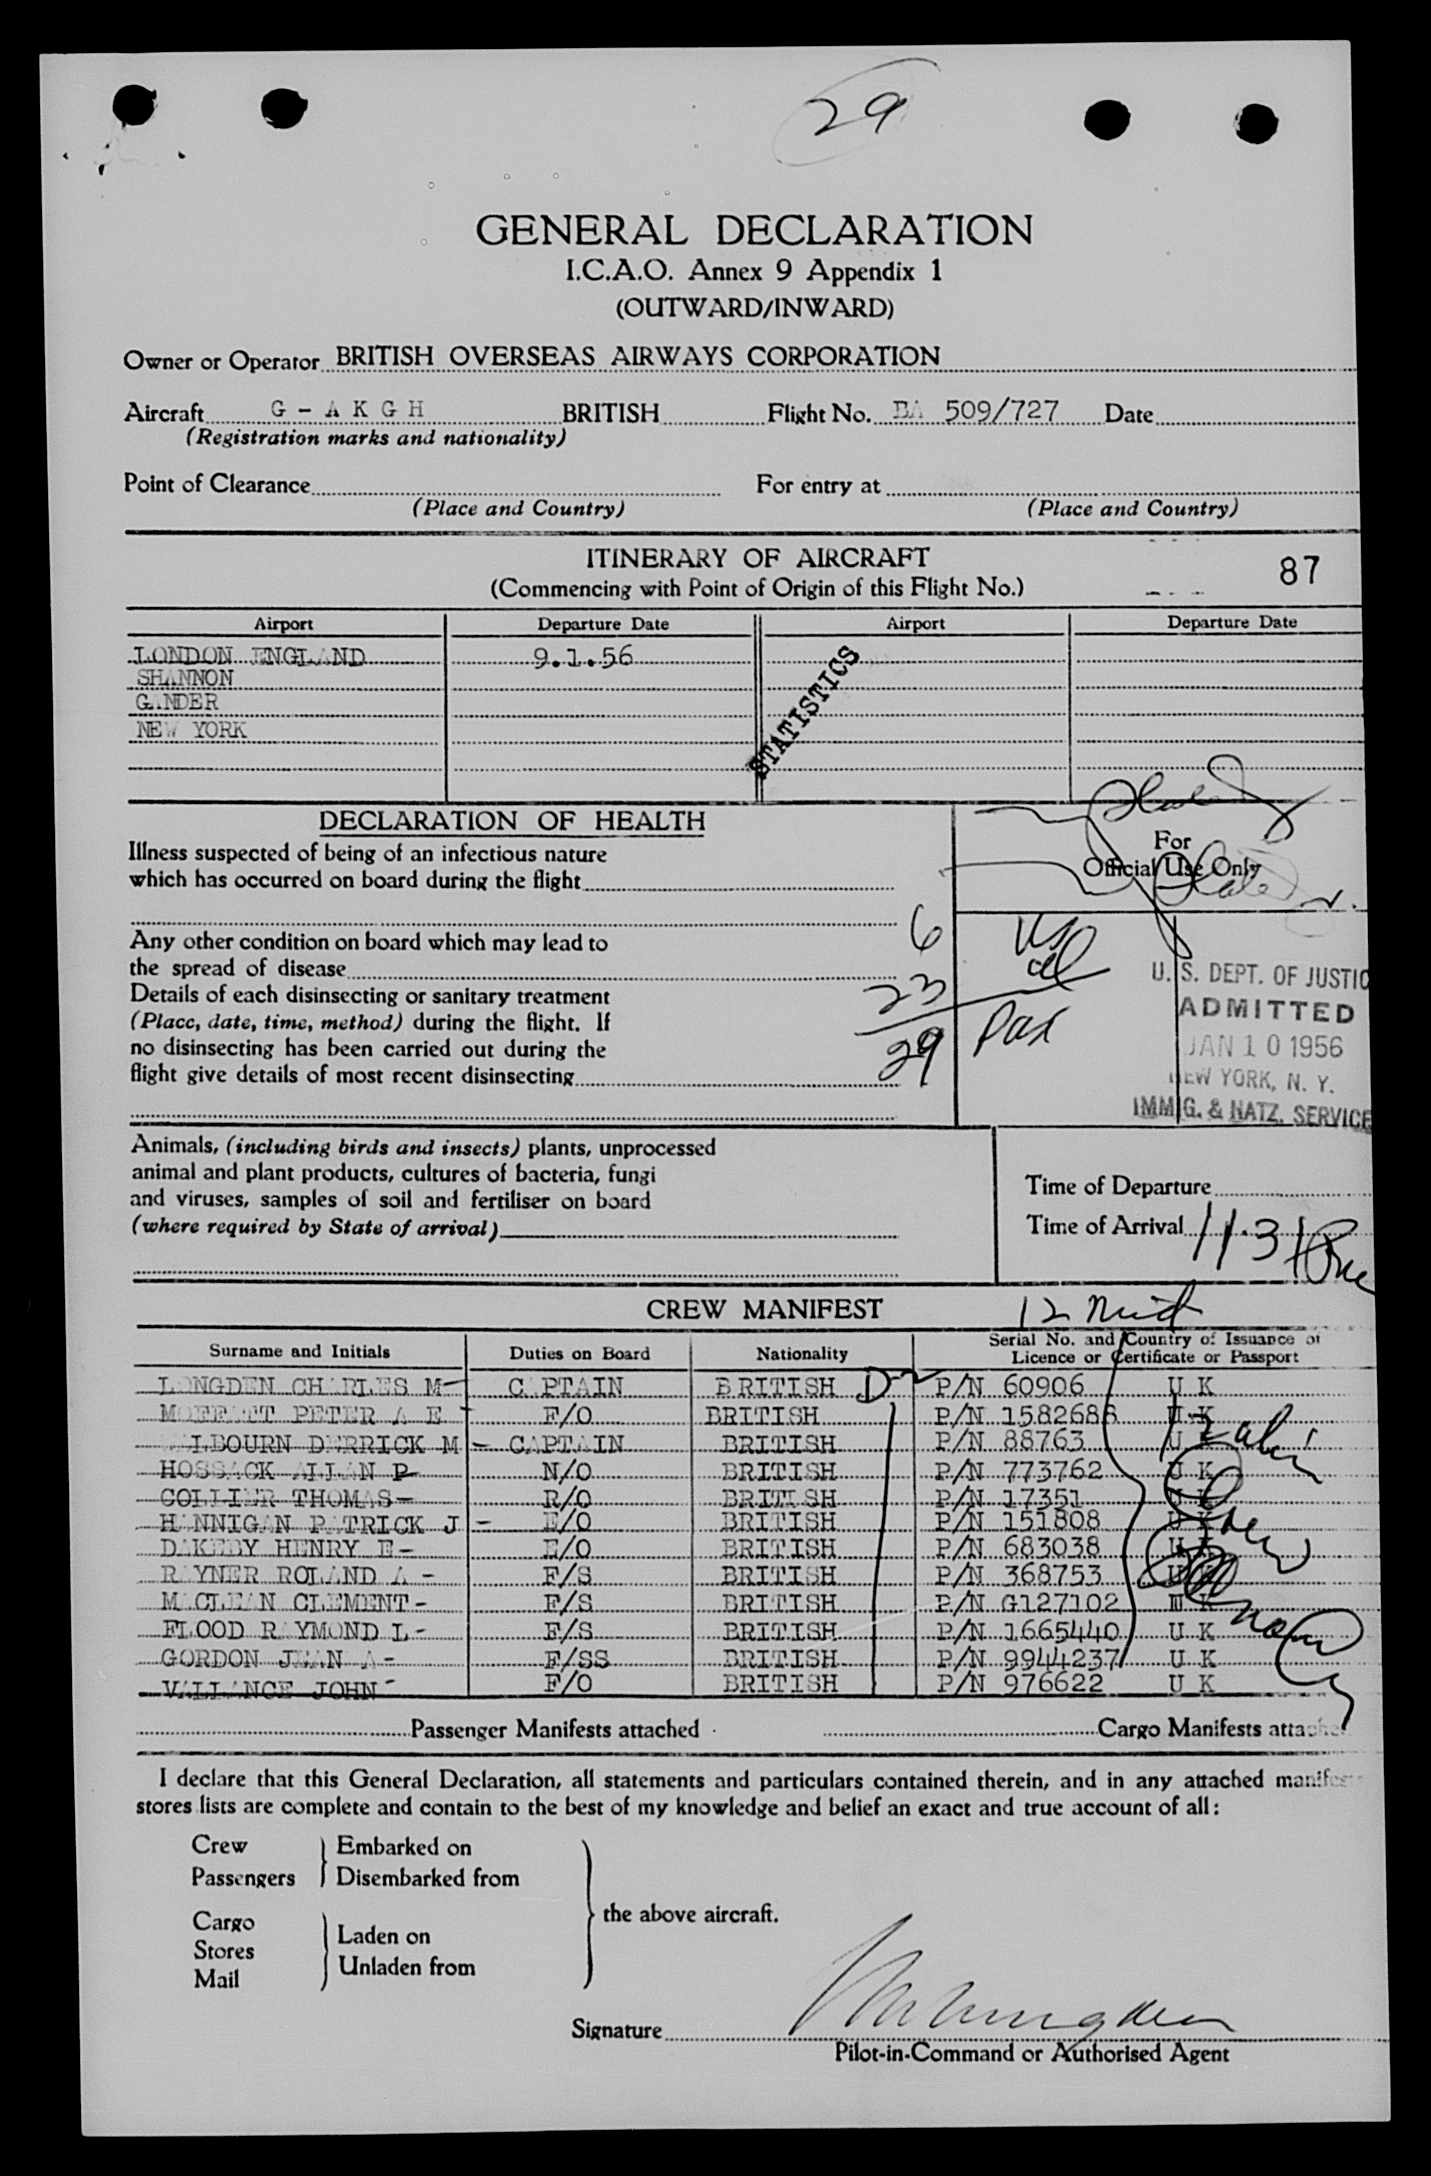 29
GENERAL DECLARATION
I.C.A.O. Annex 9 Appendix 1
(OUTWARD/INWARD)
Owner or Operator BRITISH OVERSEAS AIRWAYS CORPORATION
Aircraft G - A K G H BRITISH Flight No. BA 509/727 Date
(Registration marks and nationality)
Point of Clearance For entry at
(Place and Country) (Place and Country)
ITINERARY OF AIRCRAFT
(Commencing with Point of Origin of this Flight No.)
87
Airport Departure Date Airport Departure Date
LONDON ENGLAND 9.1.56
SHANNON
GANDER
NEW YORK
STATISTICS
DECLARATION OF HEALTH
Illness suspected of being of an infectious nature
which has occurred on board during the flight
For
Official Use Only
Any other condition on board which may lead to
the spread of disease
Details of each disinsecting or sanitary treatment
(Place, date, time, method) during the flight. If
no disinsecting has been carried out during the
flight give details of most recent disinsecting
6 US
23 al
29 Pax
U. S. DEPT. OF JUSTIC
ADMITTED
JAN 10 1956
NEW YORK, N. Y.
IMMIG. & NATZ. SERVICE
Animals, (including birds and insects) plants, unprocessed
animal and plant products, cultures of bacteria, fungi
and viruses, samples of soil and fertiliser on board
(where required by State of arrival)
Time of Departure
Time of Arrival 11.31
12 Mid
CREW MANIFEST
Surname and Initials Duties on Board Nationality Serial No. and Country of Issuance of
Licence or Certificate or Passport
LONGDEN CHARLES M- CAPTAIN BRITISH P/N 60906 U K
MOFFATT PETER A E - F/O BRITISH P/N 1582688 U K
LBOURN DERRICK M - CAPTAIN BRITISH P/N 88763 U
HOSSACK ALLAN P- N/O BRITISH P/N 773762 U K
COLLIER THOMAS- R/O BRITISH P/N 17351 U K
HANNIGAN PATRICK J - E/O BRITISH P/N 151808 U K
DAKEBY HENRY E- E/O BRITISH P/N 683038 U K
RAYNER ROLAND A - F/S BRITISH P/N 368753 U K
MACLEAN CLEMENT- F/S BRITISH P/N G127102 U K
FLOOD RAYMOND L- F/S BRITISH P/N 1665440 U K
GORDON JEAN A- F/SS BRITISH P/N 9944237 U K
VALLANCE JOHN- F/O BRITISH P/N 976622 U K
Passenger Manifests attached Cargo Manifests attached
I declare that this General Declaration, all statements and particulars contained therein, and in any attached manifes
stores lists are complete and contain to the best of my knowledge and belief an exact and true account of all:
Crew Embarked on
Passengers Disembarked from
the above aircraft.
Cargo
Stores Laden on
Mail Unladen from
Signature
Pilot-in-Command or Authorised Agent